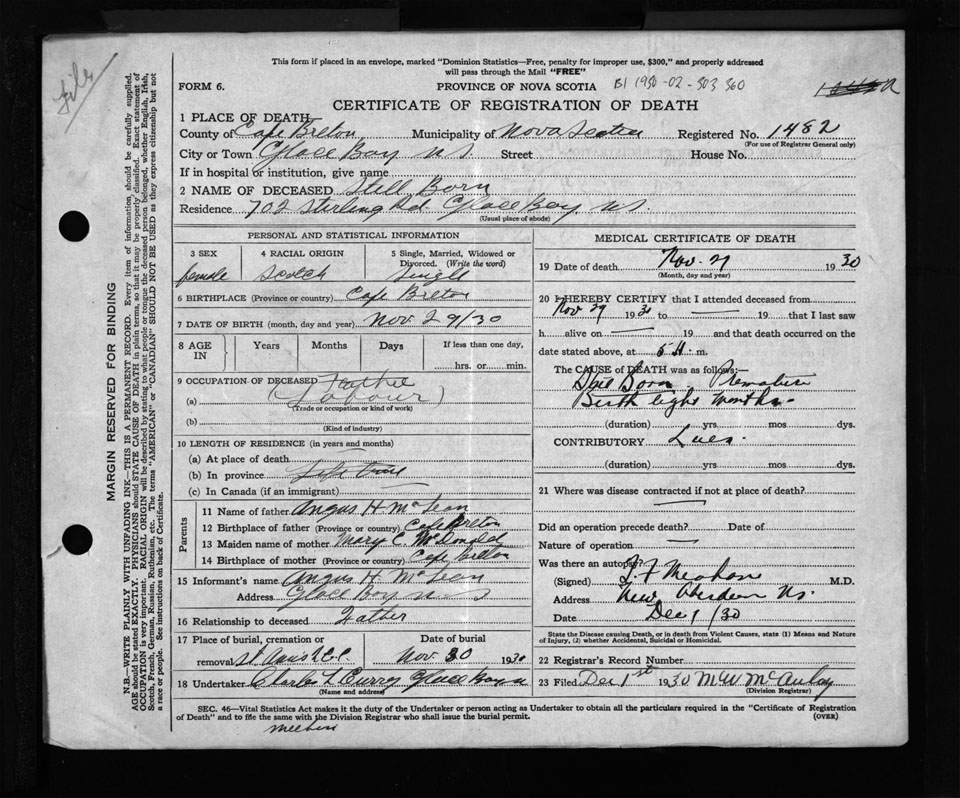 File
This form if placed in an envelope, marked "Dominion Statistics—Free, penalty for improper use, $300," and properly addressed
will pass through the Mail "FREE"
FORM 6.
PROVINCE OF NOVA SCOTIA
B1 1930-02-303 360
CERTIFICATE OF REGISTRATION OF DEATH
1 PLACE OF DEATH
County of Cape Breton Municipality of Nova Scotia Registered No. 1482
(For use of Registrar General only)
City or Town Glace Bay N.S. Street House No.
If in hospital or institution, give name
2 NAME OF DECEASED Still Born
Residence 702 Sterling Rd Glace Bay N.S.
(Usual place of abode)
PERSONAL AND STATISTICAL INFORMATION
3 SEX 4 RACIAL ORIGIN 5 Single, Married, Widowed or
Divorced. (Write the word)
female Scotch Single
6 BIRTHPLACE (Province or country) Cape Breton
7 DATE OF BIRTH (month, day and year) Nov 29/30
8 AGE IN Years Months Days If less than one day,
hrs. or min.
9 OCCUPATION OF DECEASED Father
(a) (Labour)
(Trade or occupation or kind of work)
(b)
(Kind of industry)
10 LENGTH OF RESIDENCE (in years and months)
(a) At place of death
(b) In province Life time
(c) In Canada (if an immigrant)
Parents
11 Name of father Angus H McLean
12 Birthplace of father (Province or country) Cape Breton
13 Maiden name of mother Mary C. McDonald
14 Birthplace of mother (Province or country) Cape Breton
15 Informant's name Angus H McLean
Address Glace Bay N.S
16 Relationship to deceased Father
17 Place of burial, cremation or Date of burial
removal St Anns Nov 30 1930
18 Undertaker Charles Curry Glace Bay
(Name and address)
MEDICAL CERTIFICATE OF DEATH
19 Date of death Nov. 29 1930
(Month, day and year)
20 I HEREBY CERTIFY that I attended deceased from
Nov 29 1930 to — 19 that I last saw
h alive on — 19 and that death occurred on the
date stated above, at 5 m.
The CAUSE OF DEATH was as follows:—
Still Born. Premature
Birth eight months.
(duration) yrs mos dys.
CONTRIBUTORY Lues.
(duration) yrs mos dys.
21 Where was disease contracted if not at place of death?
Did an operation precede death? Date of
Nature of operation —
Was there an autopsy?
(Signed) M.D.
Address New Aberdeen N.S.
Date Dec 1/30
State the Disease causing Death, or in death from Violent Causes, state (1) Means and Nature
of Injury, (2) whether Accidental, Suicidal or Homicidal.
22 Registrar's Record Number
23 Filed Dec 1st 1930 M W McAulay
(Division Registrar)
SEC. 46—Vital Statistics Act makes it the duty of the Undertaker or person acting as Undertaker to obtain all the particulars required in the "Certificate of Registration
of Death" and to file the same with the Division Registrar who shall issue the burial permit. (OVER)
MARGIN RESERVED FOR BINDING
N.B.—WRITE PLAINLY WITH UNFADING INK—THIS IS A PERMANENT RECORD. Every item of information should be carefully supplied.
AGE should be stated EXACTLY. PHYSICIANS should STATE CAUSE OF DEATH in plain terms, so that it may be properly classified. Exact statement of
OCCUPATION is very important. RACIAL ORIGIN will be described by stating to what people or tongue the deceased person belonged, whether English, Irish,
Scotch, French, German, Russian, Ruthenian, etc. The terms "AMERICAN" or "CANADIAN" SHOULD NOT BE USED as they express citizenship but not
a race or people. See instructions on back of Certificate.